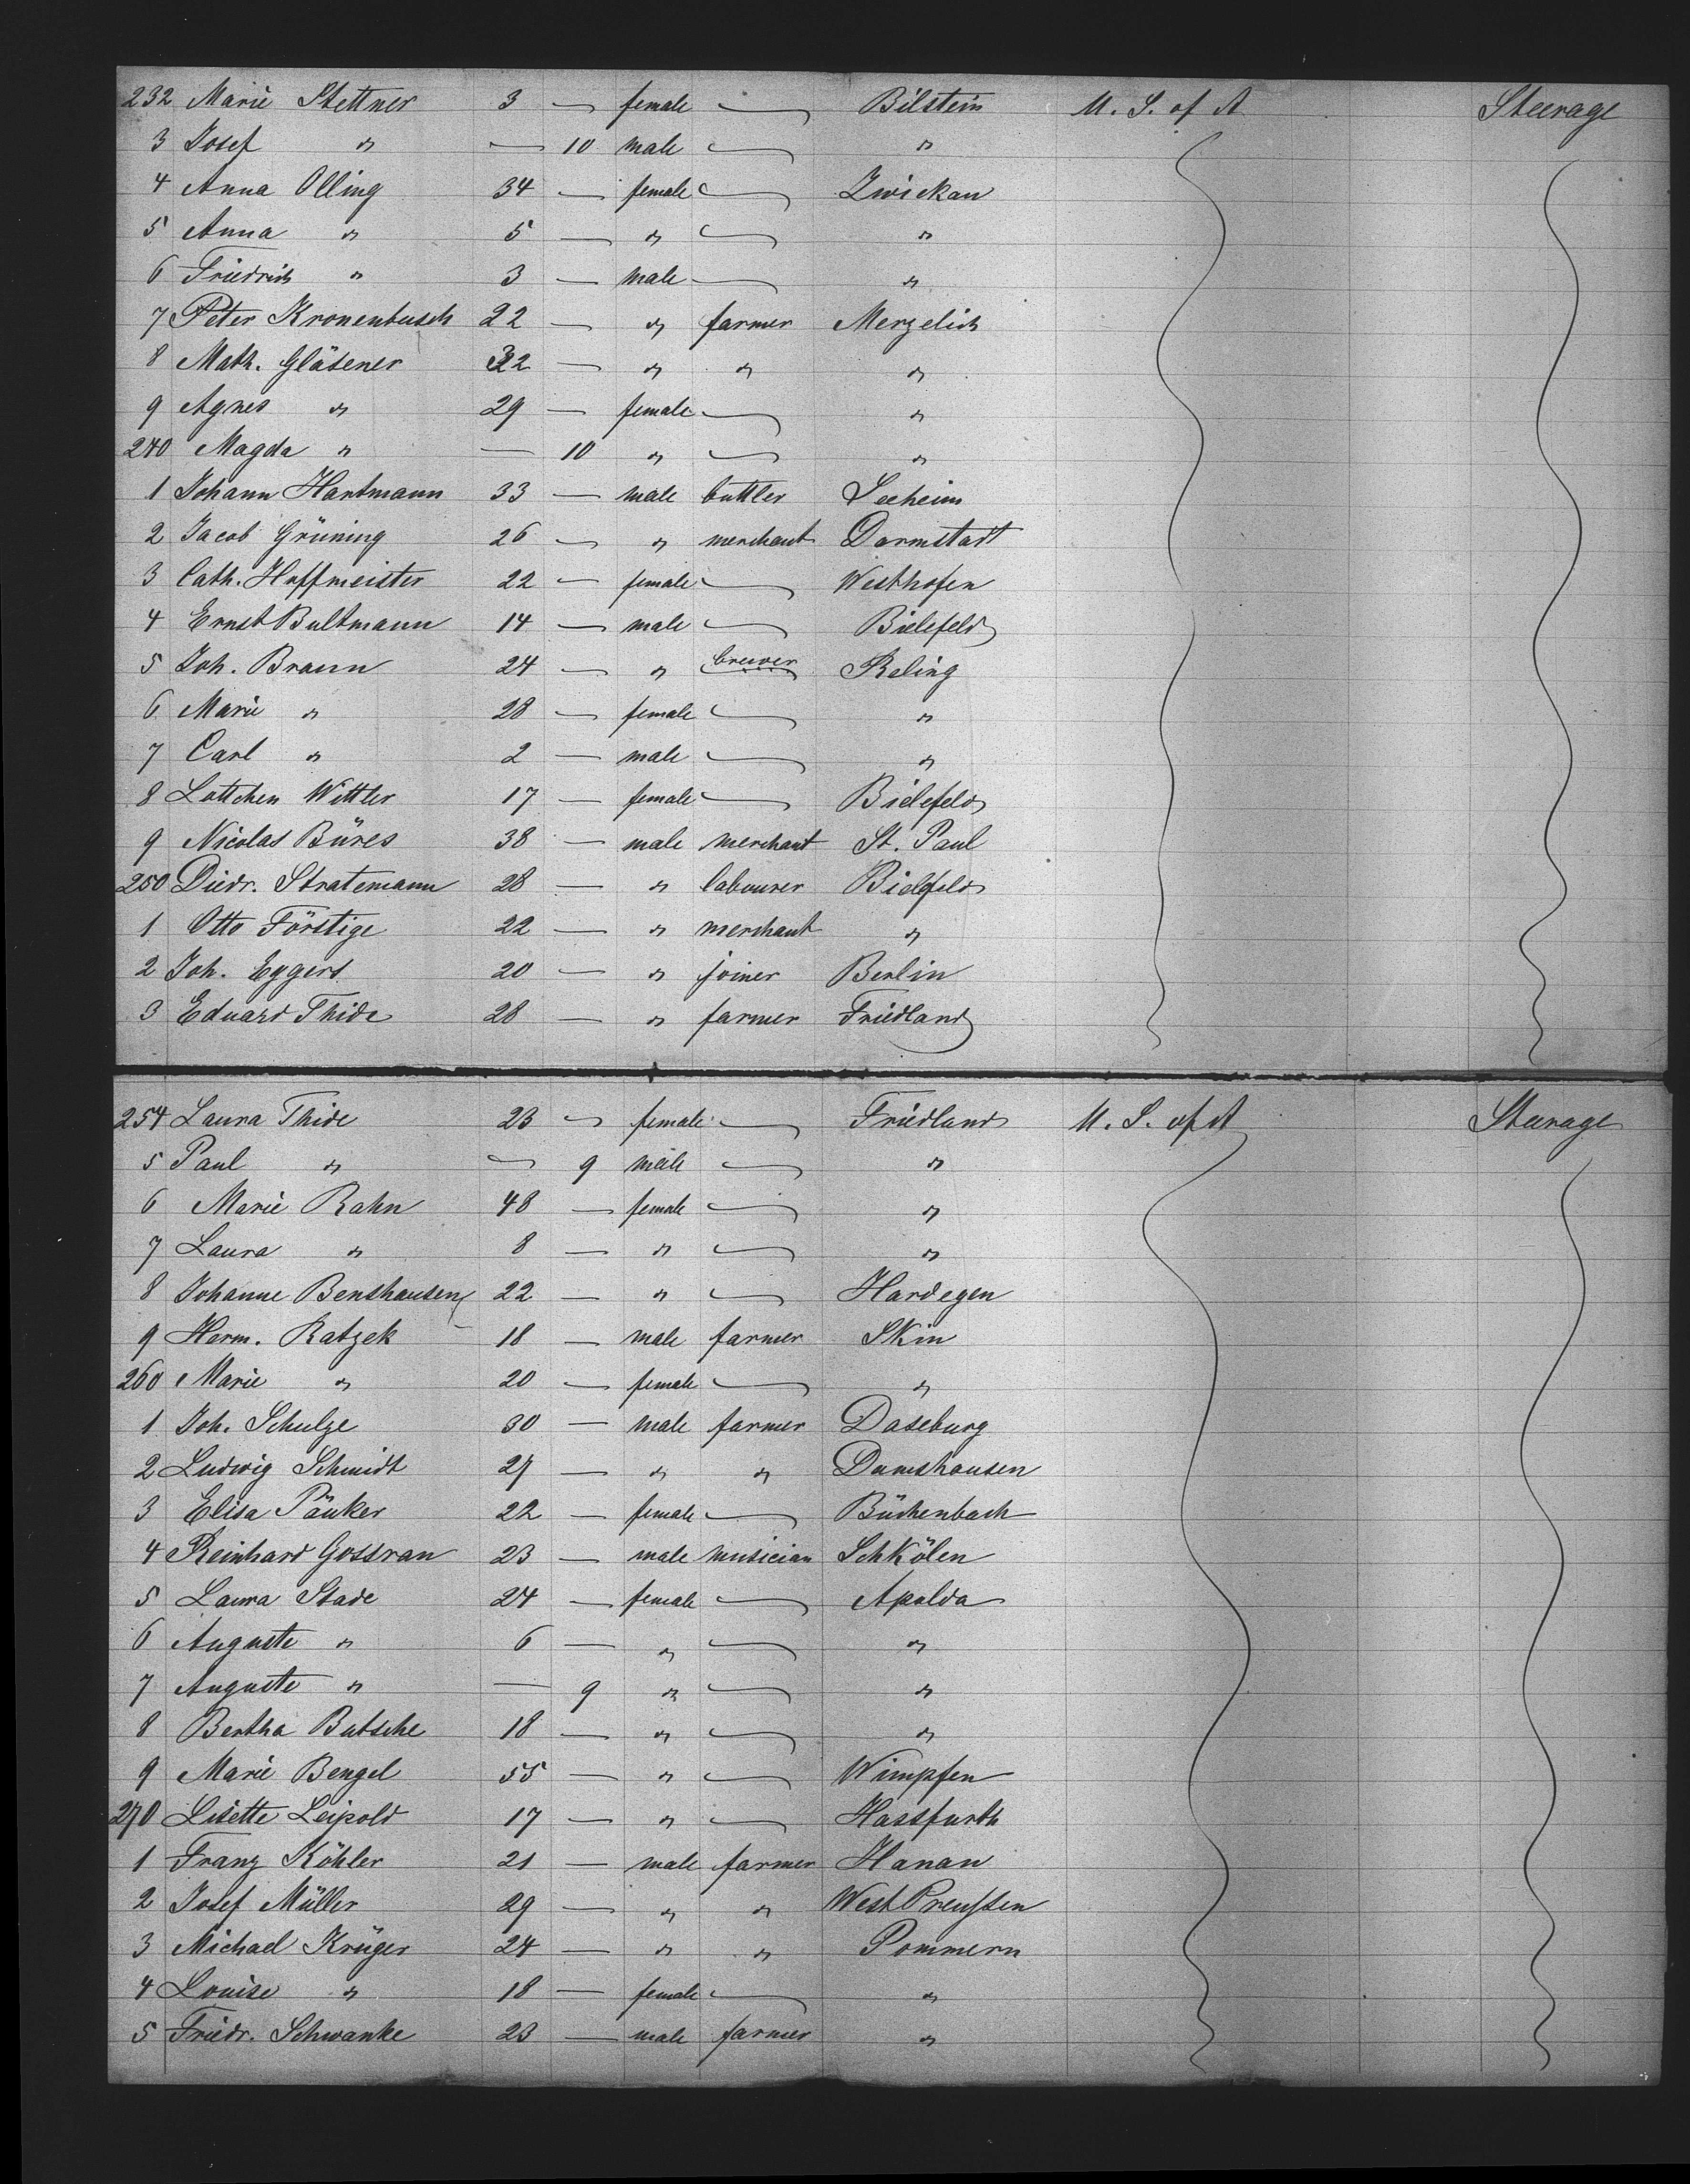 232 Marie Stettner 3 — female — Bilstein U. S. of A Steerage
3 Josef " — 10 male — "
4 Anna Olling 34 — female — Zwickau
5 Anna " 5 — " — "
6 Friedrich " 3 — male — "
7 Peter Kronenbusch 22 — " farmer Merzelich
8 Math. Gläsener 32 — " " "
9 Agnes " 29 — female — "
240 Magda " — 10 " — "
1 Johann Hartmann 33 — male buttler Seeheim
2 Jacob Grüning 26 — " merchant Darmstadt
3 Cath. Hoffmeister 22 — female — Westhofen
4 Ernst Bultmann 14 — male — Bielefeld
5 Joh. Braun 24 — " brewer Reling
6 Marie " 28 — female — "
7 Carl " 2 — male — "
8 Lottchen Wittler 17 — female — Bielefeld
9 Nicolas Büres 38 — male merchant St. Paul
250 Diedr. Stratemann 28 — " labourer Bielefeld
1 Otto Förstige 22 — " merchant "
2 Joh. Eggers 20 — " joiner Berlin
3 Eduard Thide 28 — " farmer Friedland
254 Laura Thide 23 — female — Friedland U. S. of A Steerage
5 Paul " — 9 male — "
6 Marie Rahn 48 — female — "
7 Laura " 8 — " — "
8 Johanne Benshausen 22 — " — Hardegen
9 Herm. Ratzek 18 — male farmer Skin
260 Marie " 20 — female — "
1 Joh. Schulze 30 — male farmer Daseburg
2 Ludwig Schmidt 27 — " " Damshausen
3 Elisa Päuker 22 — female — Büchenbach
4 Reinhard Gossran 23 — male musician Schkölen
5 Laura Stade 24 — female — Apolda
6 Auguste " 6 — " — "
7 Auguste " — 9 " — "
8 Bertha Butsche 18 — " — "
9 Marie Bengel 55 — " — Wimpfen
270 Lisette Leipold 17 — " — Hassfurth
1 Franz Köhler 21 — male farmer Hanau
2 Josef Müller 29 — " " West Preußen
3 Michael Krüger 24 — " " Pommern
4 Louise " 18 — female — "
5 Friedr. Schwanke 23 — male farmer "